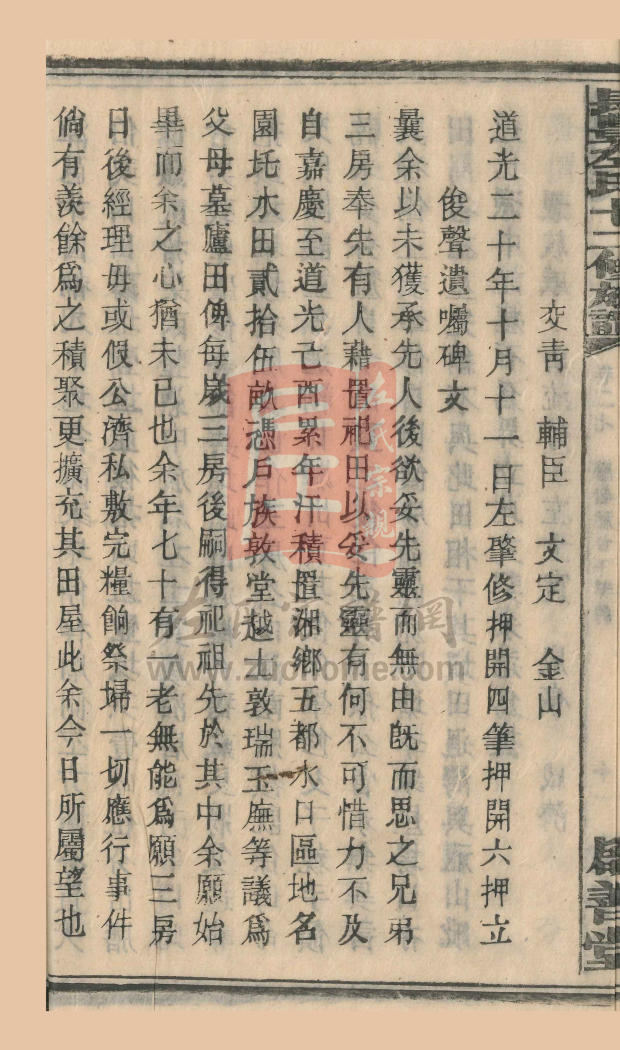 文青 輔臣 文定 金山
道光二十年十月十一日左肇修押開四筆押開六押立
俊聲遺囑碑文
曩余以未獲承先人後欲妥先靈而無由旣而思之兄弟
三房奉先有人藉置祀田以妥先靈有何不可惜力不及
自嘉慶至道光亡酉累年汗積置湘鄉五都水口區地名
園圫水田貳拾伍畝憑戶族敦堂越士敦瑞玉廡等議爲
父母墓廬田俾每歲三房後嗣得祀祖先於其中余願始
畢而余之心猶未已也余年七十有一老無能爲願三房
日後經理毋或假公濟私敷完糧餉祭埽一切應行事件
倘有羨餘爲之積聚更擴充其田屋此余今日所屬望也
左氏十二修族譜
善堂
左氏宗親
www.zuohome.com